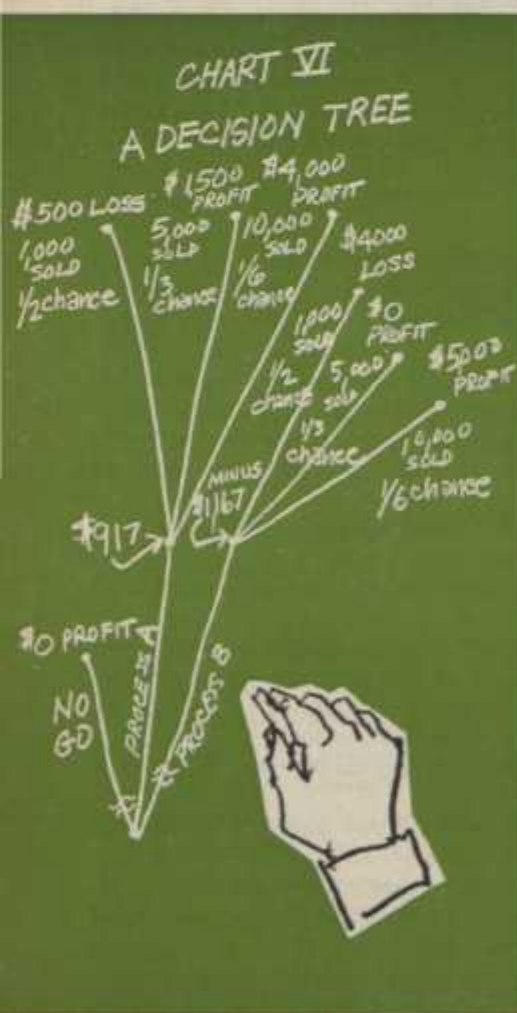 CHART VI
A DECISION TREE
$500 LOSS
1,000
SOLD
1/2 chance
$1,500
PROFIT
5,000
SOLD
1/3
chance
$4,000
PROFIT
10,000
SOLD
1/6
chance
$4000
LOSS
1,000
SOLD
1/2
chance
$0
PROFIT
5,000
SOLD
1/3
chance
$5,000
PROFIT
10,000
SOLD
1/6 chance
$917
MINUS
$1,167
$0 PROFIT
NO
GO
PROCESS A
PROCESS B